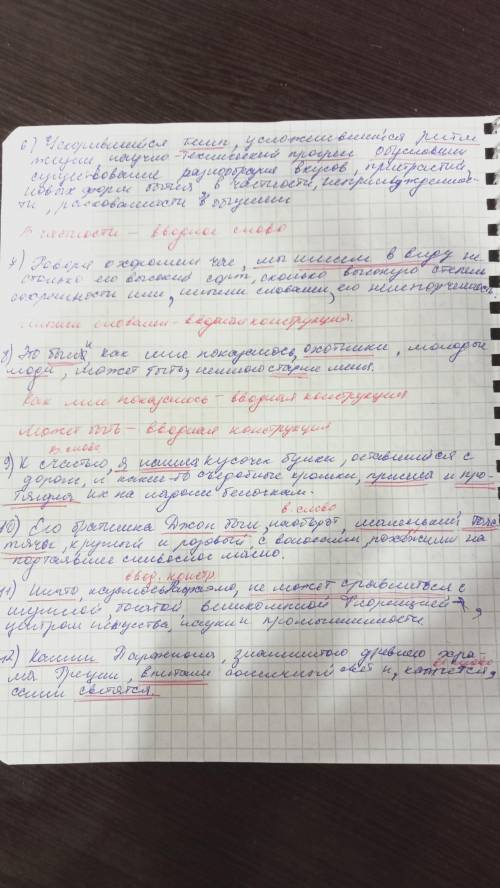 6) Ускорившийся темп, усложнившийся ритм
жизни, научно-технический прогресс обусловили
существование разнообразия вкусов, пристрастий,
новых форм бытия, в частности, непринужденнос-
ти, раскованности в общении
В частности - вводное слово
7) Говоря о хорошем чае, мы имеем в виду не
столько его высокий сорт, сколько высокую степень
сохранности или, иными словами, его неиспорченность.
Иными словами - вводная конструкция.
8) Это были, как мне показалось, охотники, молодые
люди, может быть, немного старше меня.
Как мне показалось - вводная конструкция
Может быть - вводная конструкция
в. слово
9) К счастью, я нашла кусочек булки, оставшийся с
дороги, и какие-то съедобные крошки, принесла и про-
тянула их на ладони белочкам.
в. слово
10) Его батюшка Джон был, наоборот, маленький, толс
тячок, круглый и розовый с волосами, похожими на
подтаявшее сливочное масло.
ввод. констр.
11) Ничто, казалось, не может сравниться с
шумной богатой великолепной Флоренцией,
центром искусства, науки и промышленности.
12) Камни Парфенона, знаменитого древнего хра
в. слово
ма Греции, впитали солнечный свет и, кажется,
сами светятся.